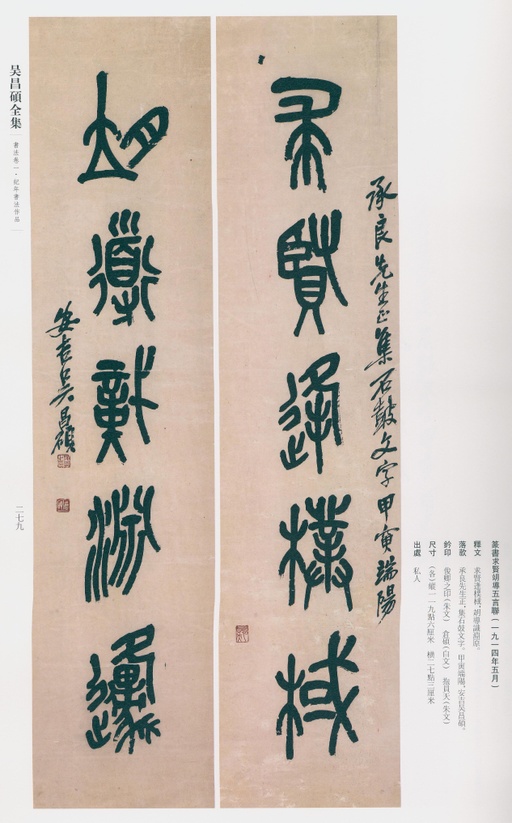 求賢逢樸棫
承良先生正集石鼓文字甲寅端陽
胡導識淵原
安吉吳昌碩
吴昌碩全集
書法卷一·紀年書法作品
二七九
篆書求賢胡導五言聯(一九一四年五月)
釋文 求賢逢樸棫,胡導識淵原。
落款 承良先生正,集石鼓文字。甲寅端陽,安吉吳昌碩。
鈐印 俊卿之印(朱文) 倉碩(白文)
尺寸 (各)縱一一九點六厘米 橫二七點三厘米
出處 私人